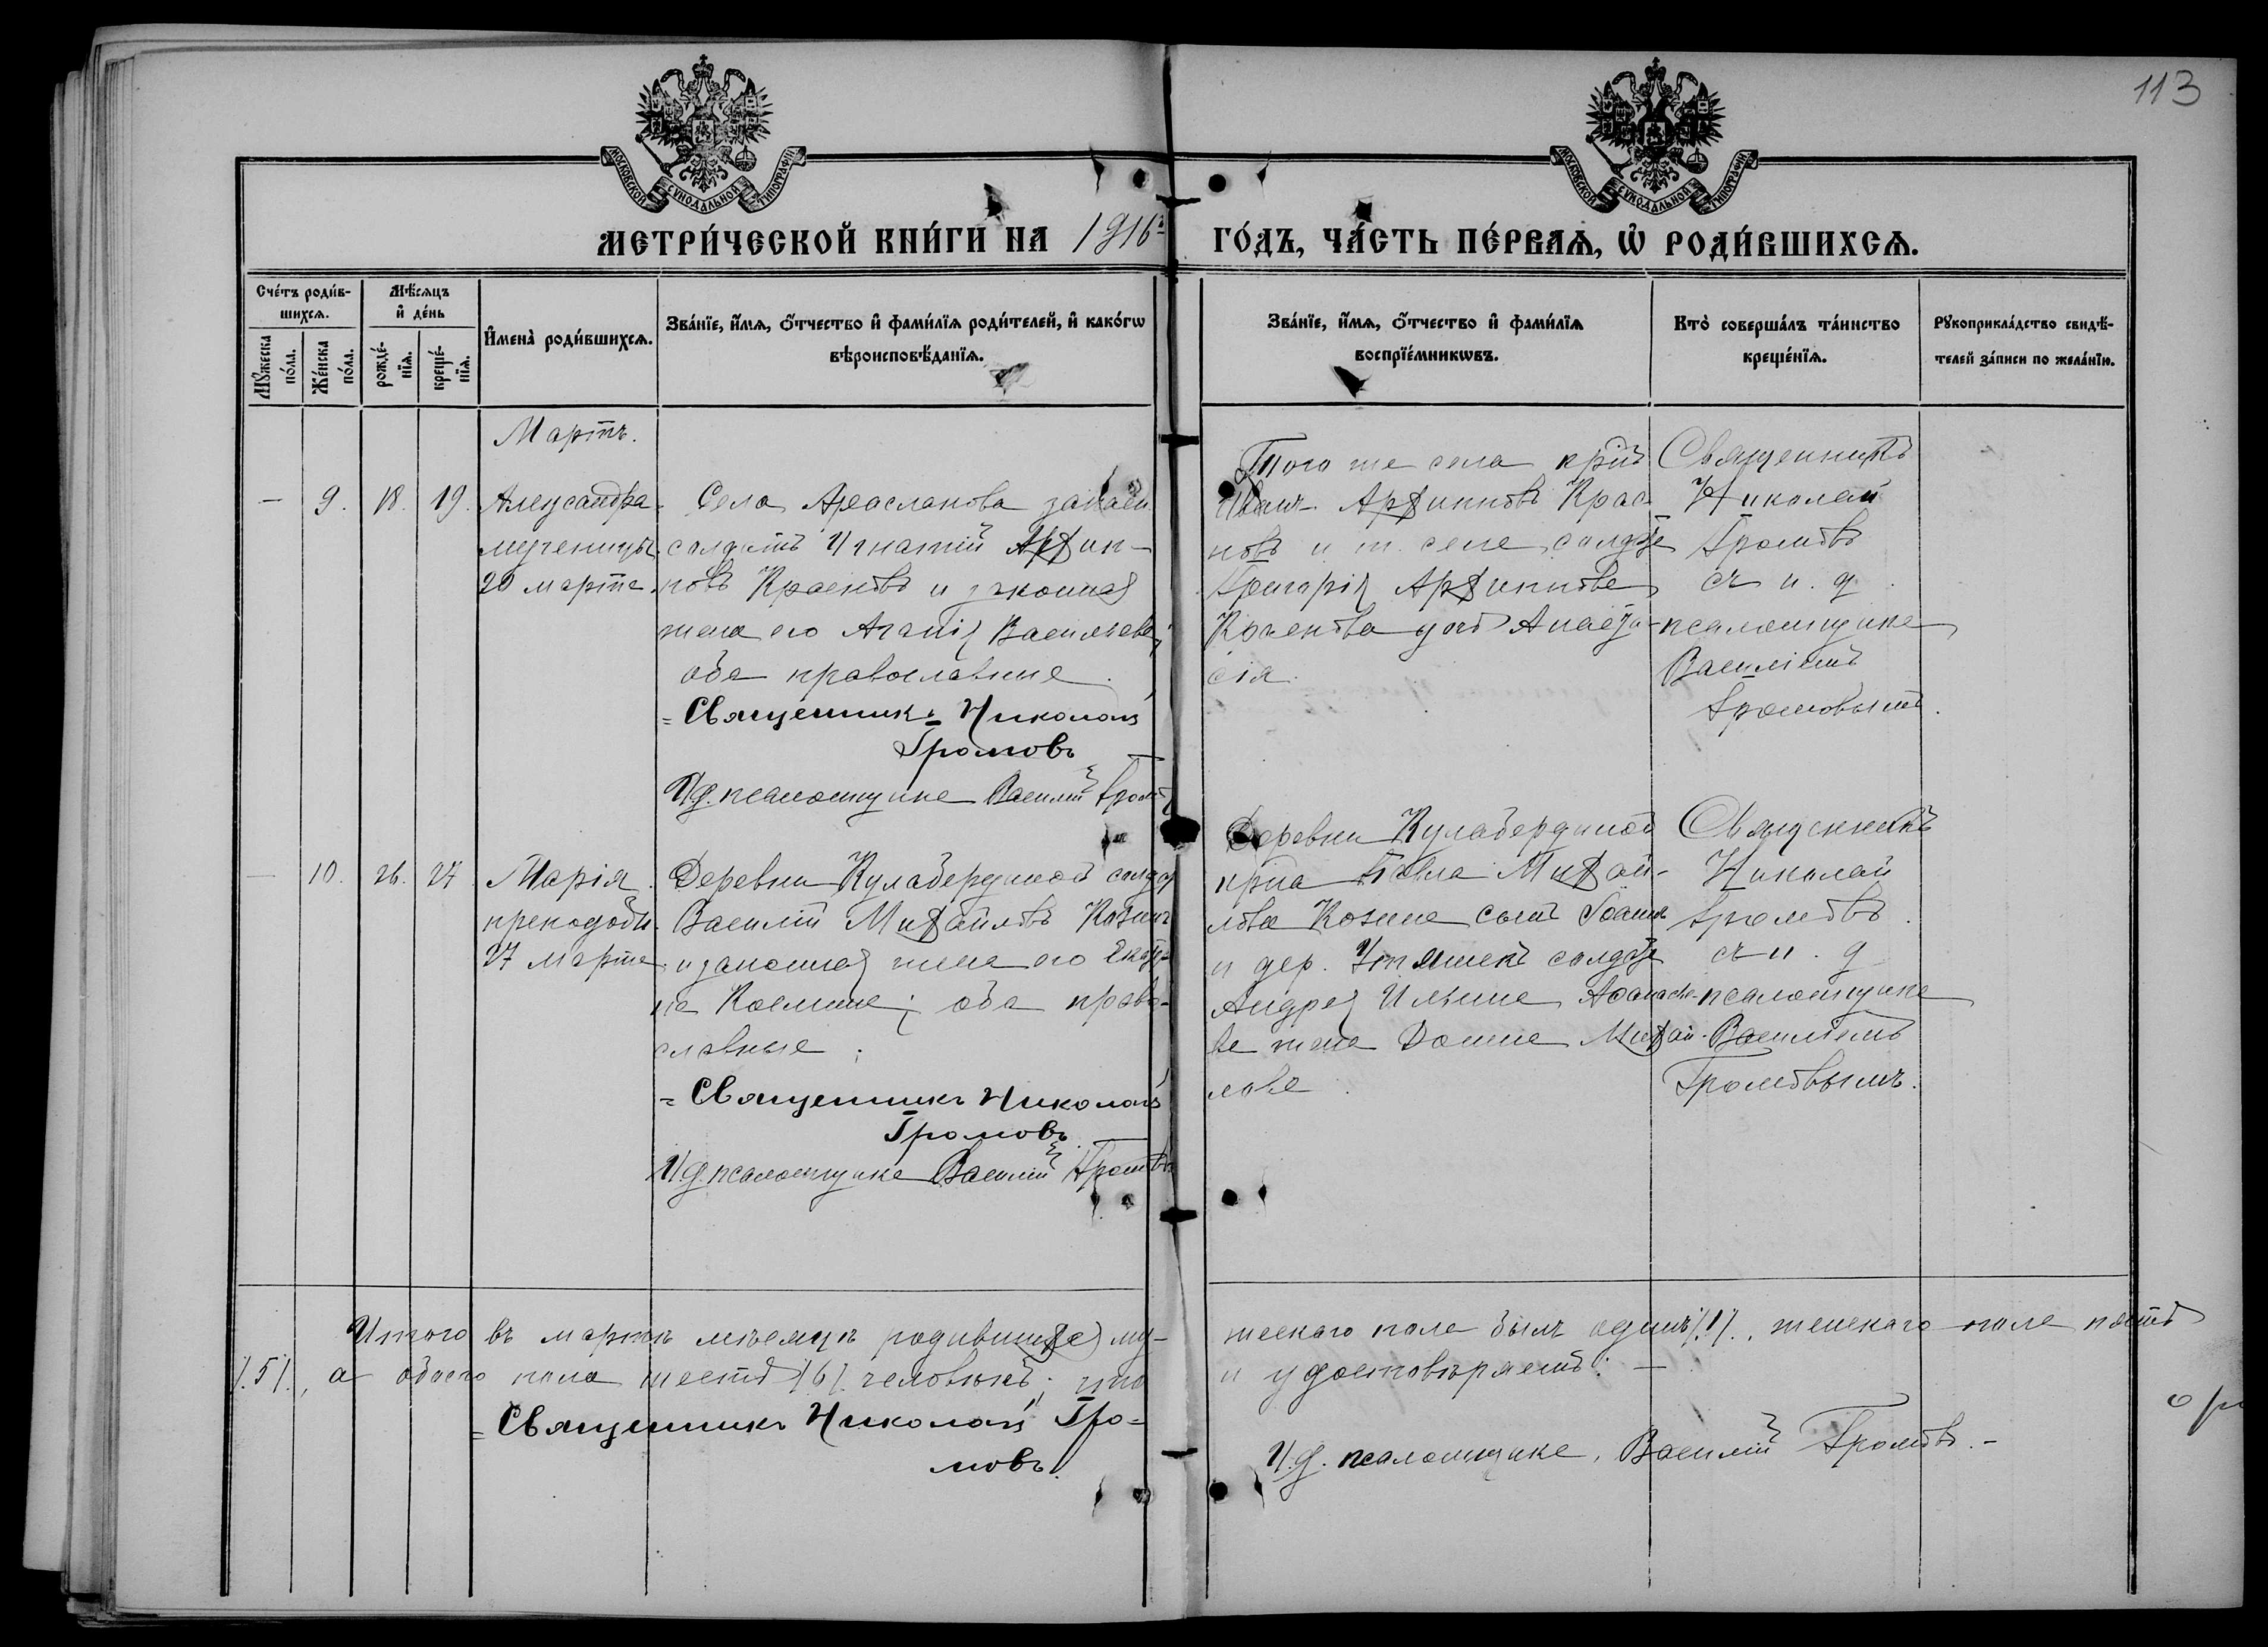 113
МОСКОВСКОЙ СѴНОДАЛЬНОЙ ТИПОГРАФІИ
МОСКОВСКОЙ СѴНОДАЛЬНОЙ ТИПОГРАФІИ
МЕТРИ́ЧЕСКОЙ КНИ́ГИ НА 1916 ГО́ДЪ, ЧА́СТЬ ПЕ́РВАѦ, Ѡ҆ РОДИ́ВШИХСѦ.
Сче́тъ роди́в-
шихсѧ.
Мꙋ́жеска
по́ла.
Же́нска
по́ла.
Мѣ́сѧцъ
и҆ де́нь
рожде́-
нїѧ.
креще́-
нїѧ.
И҆мена̀ роди́вшихсѧ.
Зва́нїе, и҆́мѧ, ѻ҆́тчество и҆ фами́лїѧ роди́телей, и҆ како́гѡ
вѣроисповѣ́данїѧ.
Зва́нїе, и҆́мѧ, ѻ҆́тчество и҆ фами́лїѧ
воспрїе́мникѡвъ.
Кто̀ соверша́лъ та́инство
креще́нїѧ.
Рꙋкоприкла́дство свидѣ́-
телей за́писи по жела́нїю.
Мартъ.
— 9. 18. 19.
Александра
мученицы
20 марта.
Села запасн.
солдатъ Игнатій Архип-
повъ Красновъ и законная
жена его Агапія Васильева;
оба православные.
= Священникъ Николай
Громовъ
И.д. псаломщика Василій Громовъ
Того же села кр-нъ
Иванъ Архипповъ Крас-
новъ и т. села солдата
Григорія Архиппова
Краснова дочь Анаста-
сія.
Священникъ
Николай
Громовъ
съ и. д.
псаломщика
Василіемъ
Громовымъ.
— 10. 26. 27
Марія.
преподобн.
27 марта
Деревни Кулабердиной солдатъ
Василій Михайловъ Козинъ
и законная жена его
на Косьмина; оба право-
славные.
= Священникъ Николай
Громовъ
И.д. псаломщика Василій Громовъ
Деревни Кулабердиной
кр-на Павла Михай-
лова Козина сынъ Іоаннъ
и дер. солдата
Андрея Ильина Аѳанасье-
ва жена Домна Михай-
лова.
Священникъ
Николай
Громовъ.
съ и. д
псаломщика
Василіемъ
Громовымъ.
Итого въ мартѣ мѣсяцѣ родившихся му-
жескаго пола былъ одинъ /1/., женскаго пола пять
/.5/., а обоего пола шесть /6/. человѣкъ; что
и удостовѣряемъ: —
= Священникъ Николай Гро-
мовъ.
И.д. псаломщика, Василій Громовъ. -